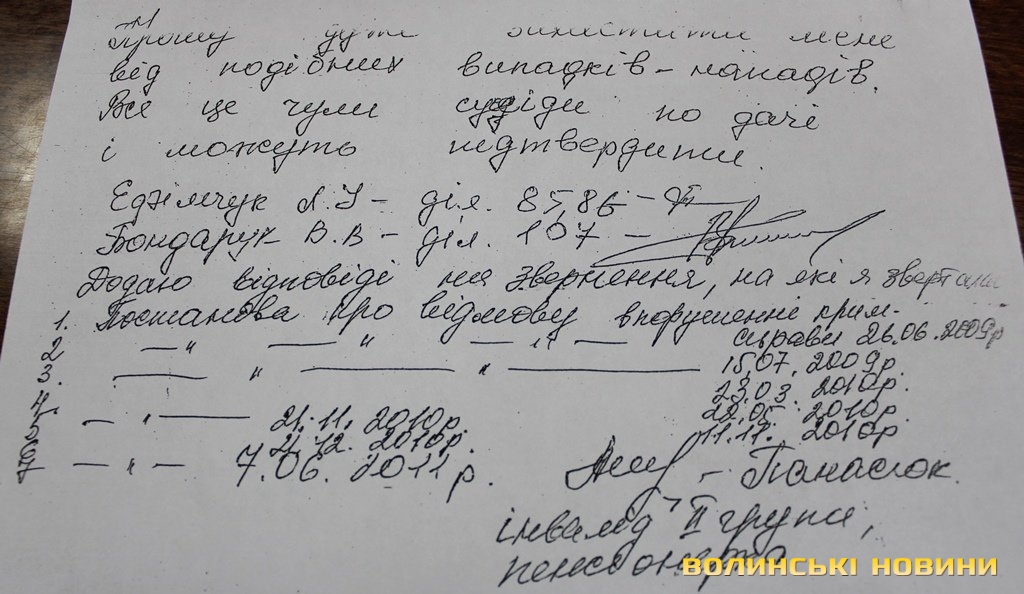 Прошу дуже захистити мене
від подібних випадків - нападів.
Все це чули сусіди по дачі
і можуть підтвердити.
діл. 85, 86 -
Бондарук В.В - діл. 107 -
Додаю відповіді на звернення, на які я
1. Постанова про відмову в порушенні крим.
справи 26.06.2009р
2 — " — " — " — 15.07.2009р.
3. — " — " — 23.03.2010р.
22.05.2010р.
11.11.2010р
— " — 21.11.2010р.
12.2010р.
— " — 7.06.2011р.
- Панасюк.
інвалід II групи,
пенсіонерка
ВОЛИНСЬКІ НОВИНИ